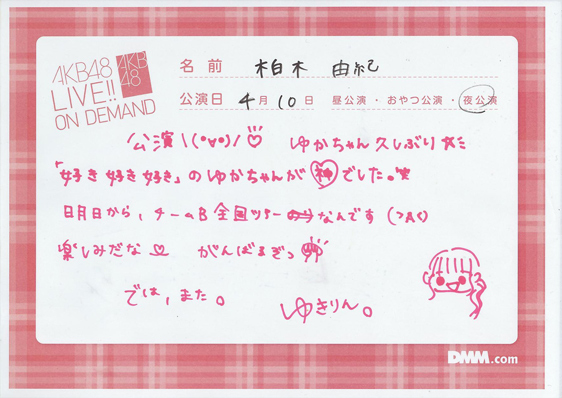 AKB48
LIVE!!
ON DEMAND
AKB
48
名前 柏木 由紀
公演日 4月10日 昼公演・おやつ公演・夜公演
公演\(°∀°)/♡ ゆかちゃん久しぶり
「好き好き好き」のゆかちゃんが神でした。
明日から、チームB全国ツアーなんです(>A<)
楽しみだな♡ がんばるぞっ
では、また。 ゆきりん。
DMM.com